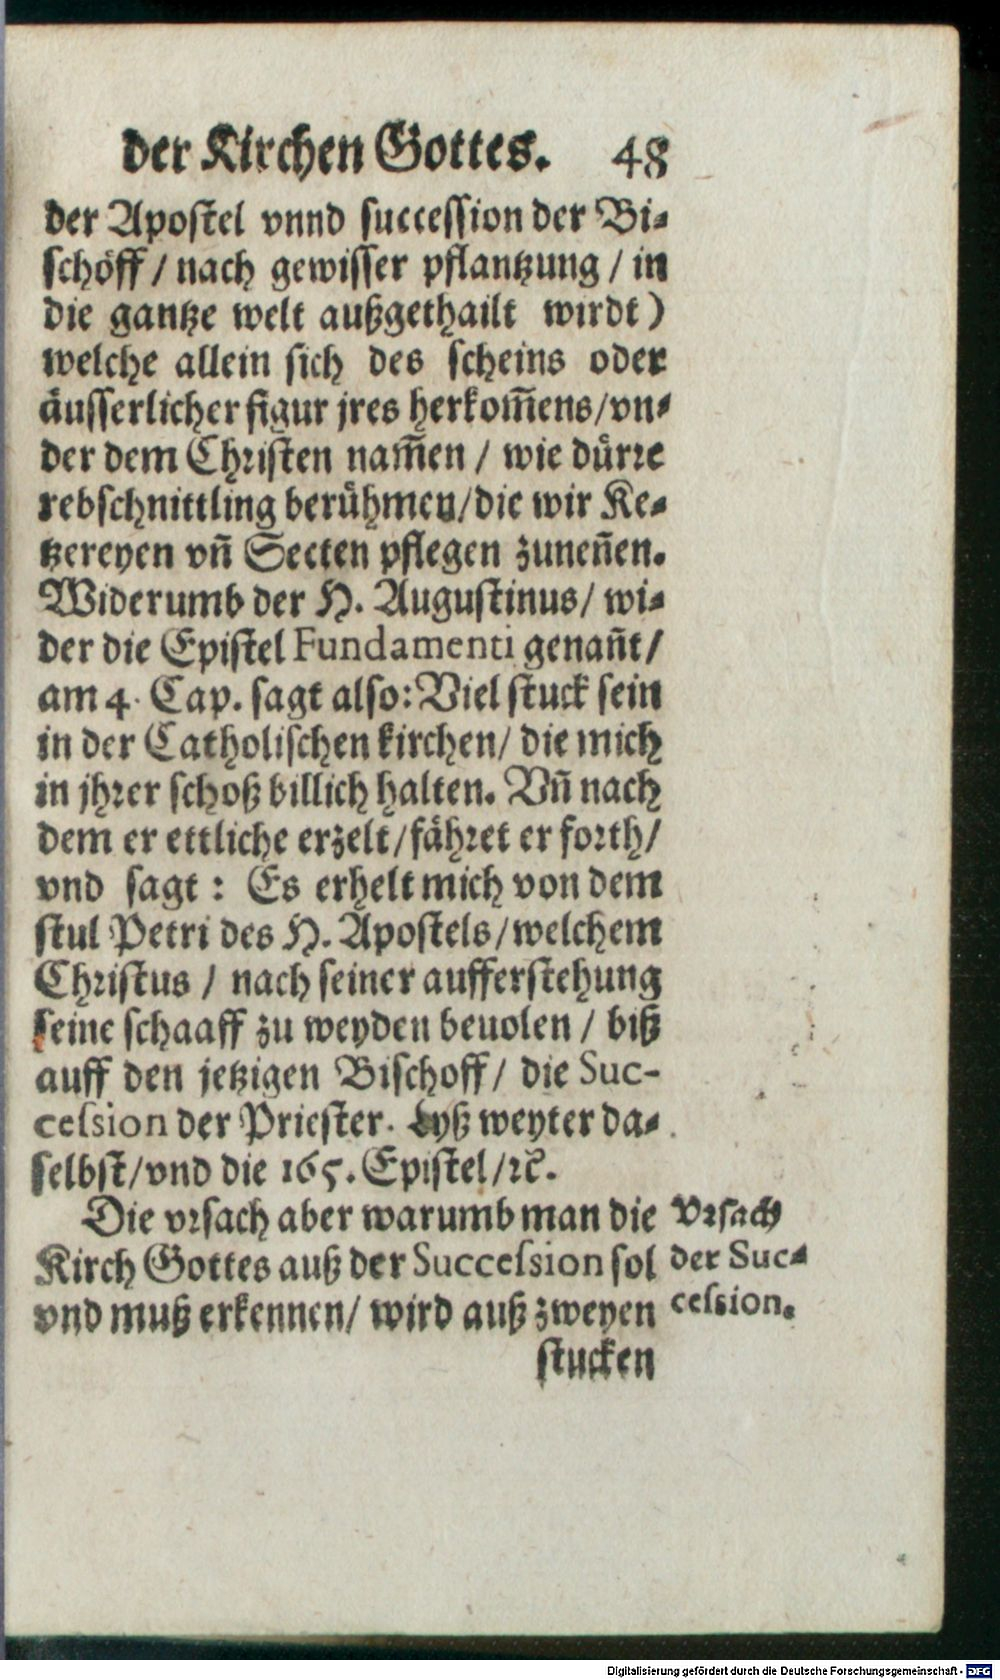 der Kirchen Gottes. 48
der Apostel vnnd succession der Bi-
schöff / nach gewisser pflantzung / in
die gantze welt außgethailt wirdt)
welche allein sich des scheins oder
äusserlicher figur jres herkom̃ens / vn-
der dem Christen nam̃en / wie dürre
rebschnittling berühmen / die wir Ke-
tzereyen vñ Secten pflegen zuneñen.
Widerumb der H. Augustinus / wi-
der die Epistel Fundamenti genañt /
am 4. Cap. sagt also: Viel stuck sein
in der Catholischen kirchen / die mich
in jhrer schoß billich halten. Vñ nach
dem er ettliche erzelt / fähret er forth /
vnd sagt : Es erhelt mich von dem
stul Petri des H. Apostels / welchem
Christus / nach seiner aufferstehung
seine schaaff zu weyden beuolen / biß
auff den jetzigen Bischoff / die Suc-
cession der Priester. Lyß weyter da-
selbst / vnd die 165. Epistel / ꝛc̃.
Die vrsach aber warumb man die
Kirch Gottes auß der Succession sol
vnd muß erkennen / wird auß zweyen
stucken
Vrsach
der Suc-
cession.
Digitalisierung gefördert durch die Deutsche Forschungsgemeinschaft - DFG